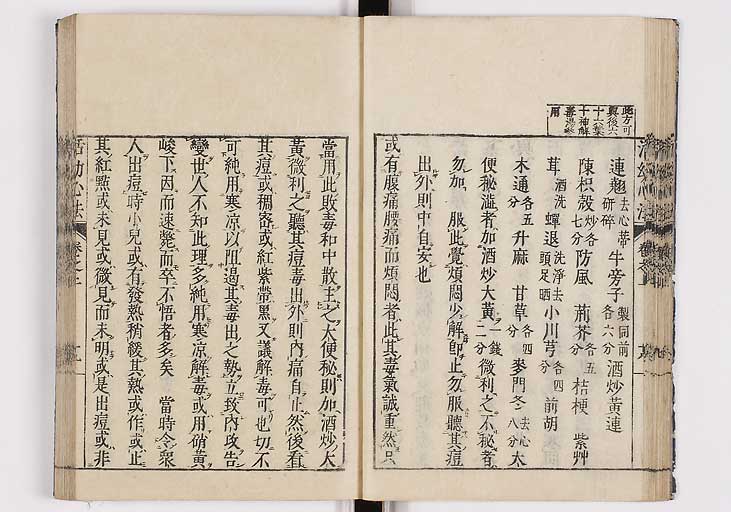 此方可
與後六
十六葉
十神解
毒湯參
用
連翹去心蒂研碎牛旁子製同前各六分酒炒黃連
陳枳殼炒各七分防風荊芥各五分桔梗紫艸
茸酒洗蟬退洗淨去頭足晒小川芎各四分前胡
木通各五分升麻甘草各四分麥門冬去心八分大
便秘澁者加酒炒大黃一錢二分微利之不秘者
勿加服此覺煩悶少解即止勿服聽其痘
出外則中自安也
或有腹痛腰痛而煩悶者此其毒氣誠重然只
當用此敗毒和中散主之大便秘則加酒炒大
黃微利之聽其痘毒出外則內痛自止然後看
其痘或稠密或紅紫帶黑又議解毒可也切不
可純用寒涼以阻遏其毒出之勢立致內攻告
變世人不知此理多純用寒涼解毒或用硝黃
峻下因而速斃而卒不悟者多矣當時令衆
人出痘時小兒或有發熱稍緩其熱或作或止
其紅點或未見或微見而未明或是出痘或非
活幼心法卷之二